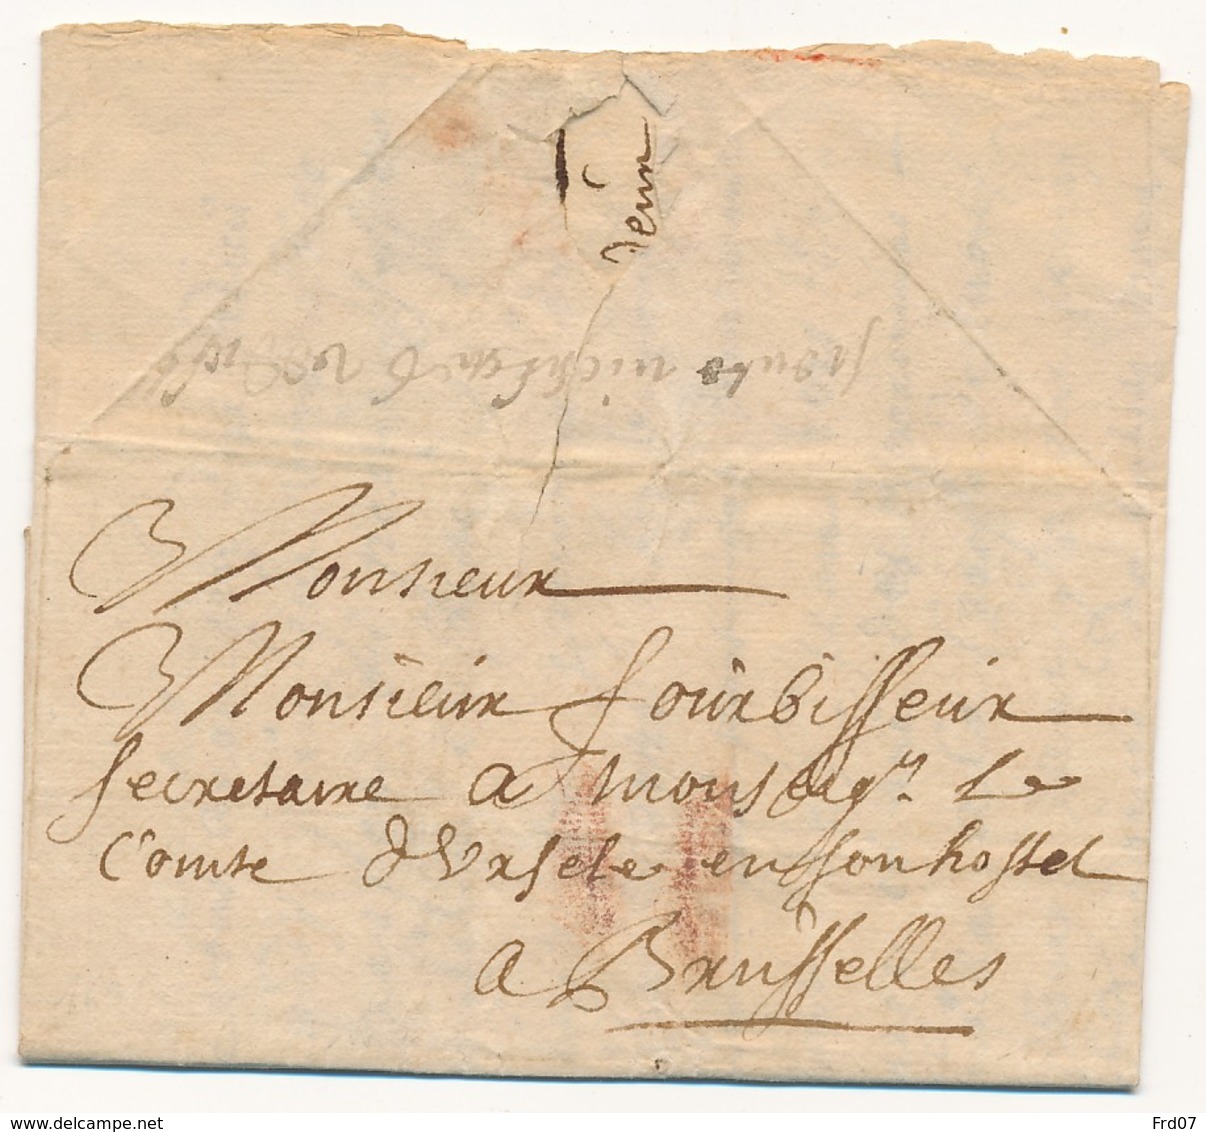 Monsieur
Monsieur fourbisseur
secretaire a monseigr. Le
Comte d'Ursele en son hostel
a Brusselles
www.delcampe.net
Frd07